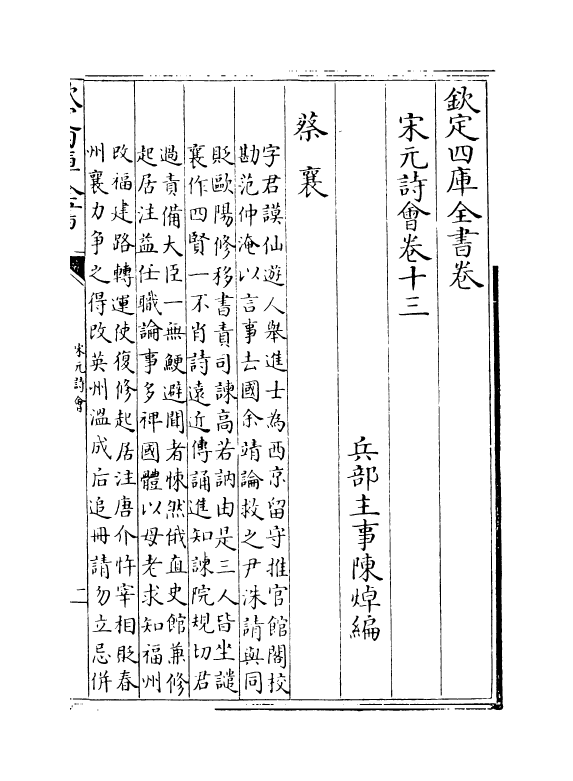 欽定四庫全書卷
宋元詩會卷十三
兵部主事陳焯編
蔡襄
字君謨仙遊人舉進士為西京留守推官館閣挍
勘范仲淹以言事去國余靖論救之尹洙請與同
貶歐陽修移書責司諫高若訥由是三人皆坐譴
襄作四賢一不肖詩遠近傳誦進知諫院規切君
過責備大臣一無鯁避聞者悚然俄直史館兼修
起居注益任職論事多裨國體以母老求知福州
改福建路轉運使復修起居注唐介忤宰相貶春
州襄力争之得改英州溫成后追冊請勿立忌併
宋元詩會